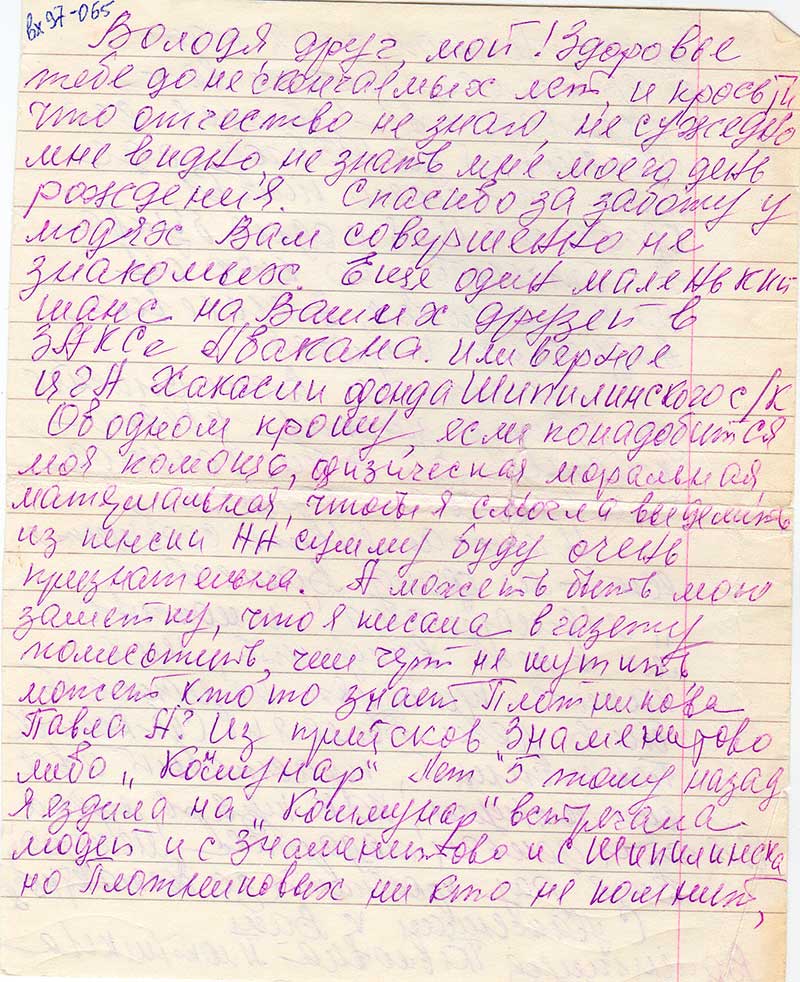 вх 97-065
Володя друг мой! Здоровье
тебе до нескончаемых лет, и прости
что отчество не знаю, не суждено
мне видно, не знать мне моего день
рождения. Спасибо за заботу у
людях Вам совершенно не
знакомых. Еще один маленький
шанс на Ваших друзей в
ЗАКСе Абакана. или вернее
ЦГА Хакасии фонда Шипилинского с/к
Об одном прошу, если понадобится
моя помощь, физическая моральная,
материальная, чтобы я смогла выделить
из пенсии НН сумму буду очень
признательна. А можеть быть мою
заметку, что я писала в газету
поместить, чем черт не шутить
может кто то знает Плотникова
Павла А? Из приисков Знаменитово
либо "Коммунар" Лет 5 тому назад
я ездила на "Коммунар" встречала
людей и с Знаменитово и с Шипилинска
но Плотниковых ни кто не помнит,